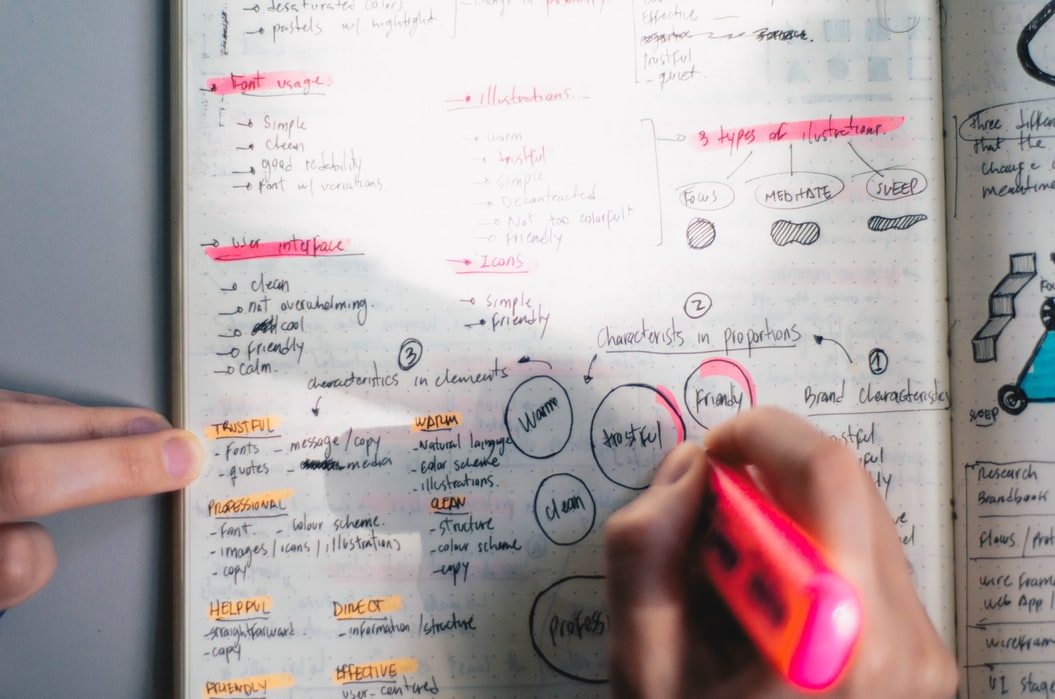 desaturated colors
pastels w/ hightlight
Font usage.
Simple
Clean
good redability
Font w/ variations.
User interface
clean
not overwhelming
cool
Friendly
calm.
change in
Illustrations.
warm
trustful
Simple
Decontracted.
Not too colorful
Friendly
Icons
Simple
Friendly
Effective
Trustful
quiet.
3 types of ilustrations.
Focus
MEDITATE
SLEEP
2
Characterists in proportions
3
characteristics in elements
1
Brand Characteristics
Warm
trustful
Friendly
clean
professi
TRUSTFUL
- Fonts - message/copy
- quotes - media
WARM
- Natural language
- color scheme
- illustrations.
PROFESSIONAL
- Font - colour scheme.
- images / icons / illustrations
- copy
CLEAN
- structure
- colour scheme
- copy
HELPFUL
- straightforward
- copy
DIRECT
- information / structure
FRIENDLY
EFFECTIVE
user-centered
three
that the
change
meantime
SLEEP
Research
Brandbook
Flows /
wire
Web App /
wirefram
UI